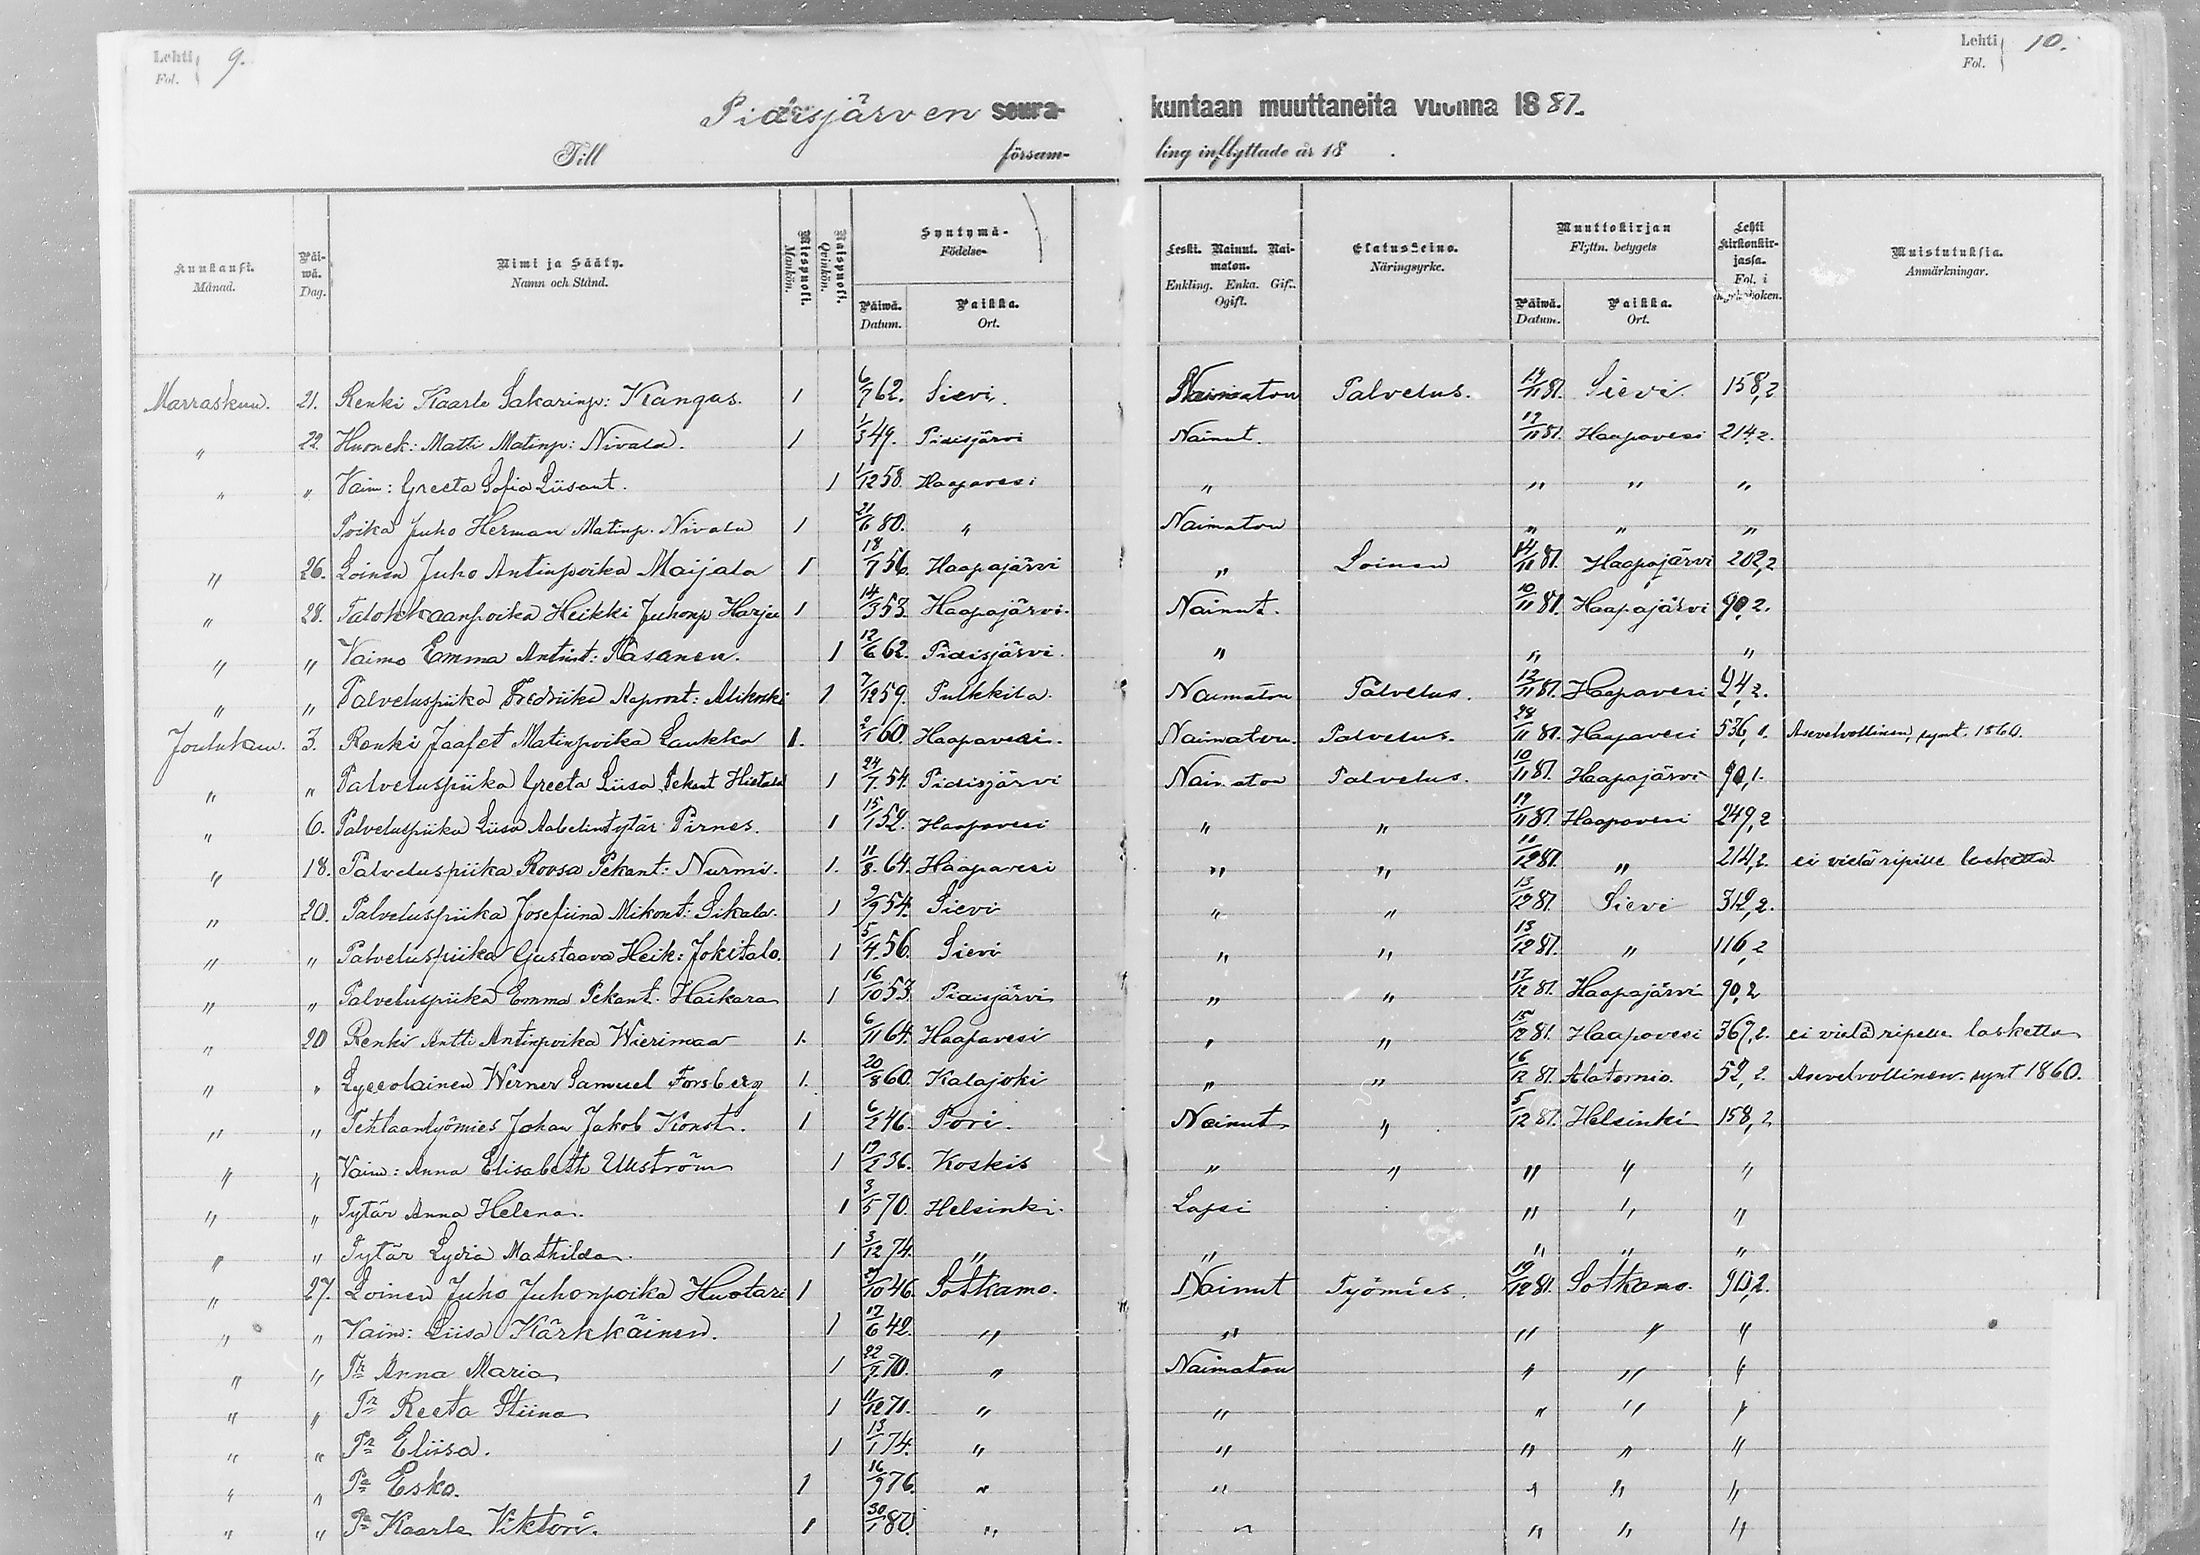 Lehti 9.
Fol.
Lehti 10.
Fol.
Pidisjärven seura- kuntaan muuttaneita vuonna 1881.
Till försam- ling inflyttade år 18 .
Kuukausi. Månad. Päiwä. Dag. Nimi ja Sääty. Namn och Stånd. Miespuoli. Mankön. Naispuoli. Qvinkön. Syntymä- Födelse- Päiwä. Datum. Paikka. Ort. Leski. Nainut. Naimaton. Enkling. Enka. Gift. Ogift. Elatuskeino. Näringsyrke. Muuttokirjan Flyttn. betygets Päiwä. Datum. Paikka. Ort. Lehti kirkonkirjassa. Fol. i kyrkoboken. Muistutuksia. Anmärkningar.
Marraskuu. 21. Renki Kaarlo Sakarinp: Kangas. 1 6/7 62. Sievi. Naimaton Palvelus. 14/11 81. Sievi. 158,2
" 22. Huonek: Matti Matinp: Nivala. 1 1/3 49. Pidisjärvi Nainut. 17/11 81. Haapavesi 214,2.
" " Vaim: Greeta Sofia Liisant. 1 1/12 58. Haapavesi " " " "
Poika Juho Herman Matinp. Nivala 1 21/6 80. " Naimaton " " "
" 26. Loinen Juho Antinpoika Maijala 1 18/7 56. Haapajärvi " Loinen 14/11 81. Haapajärvi 202,2
" 28. Talokkaanpoika Heikki Juhonp Harju 1 14/3 53. Haapajärvi. Nainut. 10/11 81. Haapajärvi 90,2.
" " Vaimo Emma Antint: Pasanen. 1 12/6 62. Pidisjärvi. " " "
" " Palveluspiika Fredriika Aapront: Alikoski 1 7/12 59. Pulkkila. Naimaton Palvelus. 12/11 81. Haapavesi 24,2.
Joulukuu. 3. Renki Jaafet Matinpoika Laukka 1. 2/1 60. Haapavesi. Naimaton. Palvelus. 28/11 81. Haapavesi 536,1. Asevelvollinen, synt. 1860.
" " Palveluspiika Greeta Liisa Pekant Hietala 1 24/7. 54. Pidisjärvi Naimaton Palvelus. 10/11 81. Haapajärvi 90,1.
" 6. Palveluspiika Liisa Aabelintytär Pirnes. 1 15/1 52. Haapavesi " " 19/11 81. Haapavesi 249,2
" 18. Palveluspiika Roosa Pekant: Nurmi. 1. 11/8. 64. Haapavesi " " 11/12 81. " 214,2. ei vielä ripille laskettu
" 20. Palveluspiika Josefiina Mikont: Sikala. 1 9/9 54. Sievi " " 13/12 81. Sievi 312,2.
" " Palveluspiika Gustaava Heik: Jokitalo. 1 5/4. 56. Sievi " " 13/12 81. " 116,2
" " Palveluspiika Emma Pekant. Haikara 1 16/10 53. Pidisjärvi " " 17/12 81. Haapajärvi 90,2
" 20 Renki Antti Antinpoika Wierimaa 1. 6/11 64. Haapavesi " " 15/12 81. Haapavesi 367,2. ei vielä ripille laskettu
" " Lyceolainen Werner Samuel Forsberg 1. 20/8 60. Kalajoki " " 16/12 81. Alatornio. 52,2. Asevelvollinen. synt 1860.
" " Tehtaantyömies Johan Jakob Konst. 1 6/2 46. Pori. Nainut " 5/12 81. Helsinki 158,2
" " Vaim: Anna Elisabeth Ullström 1 19/2 36. Koskis " " " " "
" " Tytär Anna Helena. 1 3/5 70. Helsinki. Lapsi " " "
" " Tytär Lydia Mathilda. 1 3/12 74. " " " " "
" 27. Loinen Juho Juhonpoika Huotari 1 /10 46. Sotkamo. Nainut Työmies. 19/12 81. Sotkamo. 90,2.
" " Vaim: Liisa Kärkkäinen. 1 17/6 42. " " " " "
" " Tr Anna Maria 1 22/7 70. " Naimaton " " "
" " Tr Reeta Stiina 1 11/12 71. " " " " "
" " Tr Eliisa. 1 13/1 74. " " " " "
" " Pa Esko. 1 16/9 76. " " " " "
" " Pa Kaarle Viktori. 1 30/1 80. " " " " "